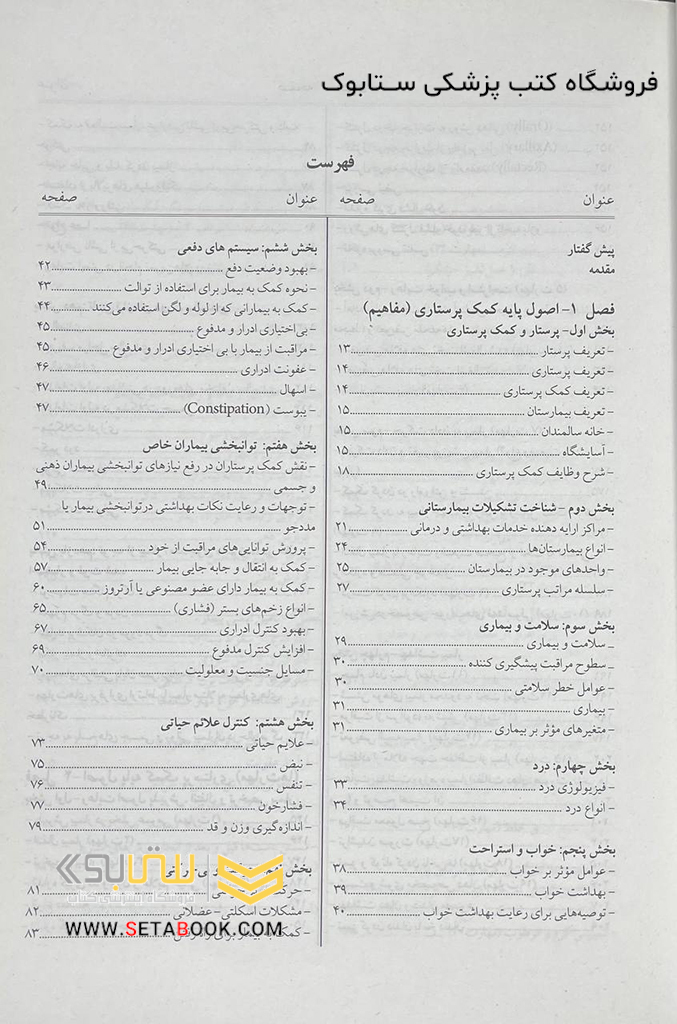 فروشگاه کتب پزشکی ســتابوک
فهرست
عنوان صفحه
پیش گفتار
مقدمه
فصل ۱- اصول پایه کمک پرستاری (مفاهیم)
بخش اول- پرستار و کمک پرستاری
- تعریف پرستار ۱۳
- تعریف پرستاری ۱۴
- تعریف کمک پرستاری ۱۴
- تعریف بیمارستان ۱۵
- خانه سالمندان ۱۵
- آسایشگاه ۱۵
- شرح وظایف کمک پرستاری ۱۸
بخش دوم - شناخت تشکیلات بیمارستانی
- مراکز ارایه دهنده خدمات بهداشتی و درمانی ۲۱
- انواع بیمارستان‌ها ۲۴
- واحدهای موجود در بیمارستان ۲۵
- سلسله مراتب پرستاری ۲۷
بخش سوم: سلامت و بیماری
_ سلامت و بیماری ۲۹
_ سطوح مراقبت پیشگیری کننده ۳۰
- عوامل خطر سلامتی ۳۰
- بیماری ۳۱
- متغیرهای مؤثر بر بیماری ۳۱
بخش چهارم: درد
- فیزیولوژی درد ۳۳
- انواع درد ۳۴
بخش پنجم: خواب و استراحت
- عوامل مؤثر بر خواب ۳۸
- بهداشت خواب ۳۹
- توصیه‌هایی برای رعایت بهداشت خواب ۴۰
عنوان صفحه
بخش ششم: سیستم های دفعی
- بهبود وضعیت دفع ۴۲
- نحوه کمک به بیمار برای استفاده از توالت ۴۳
- کمک به بیمارانی که از لوله و لگن استفاده می‌کنند ۴۴
- بی‌اختیاری ادرار و مدفوع ۴۵
- مراقبت از بیمار با بی اختیاری ادرار و مدفوع ۴۵
- عفونت ادراری ۴۶
- اسهال ۴۷
- یبوست (Constipation) ۴۷
بخش هفتم: توانبخشی بیماران خاص
- نقش کمک پرستاران در رفع نیازهای توانبخشی بیماران ذهنی
و جسمی ۴۹
- توجهات و رعایت نکات بهداشتی درتوانبخشی بیمار یا
مددجو ۵۱
- پرورش توانایی‌های مراقبت از خود ۵۴
- کمک به انتقال و جابه جایی بیمار ۵۷
- کمک به بیمار دارای عضو مصنوعی یا آرتروز ۶۰
- انواع زخم‌های بستر (فشاری) ۶۵
- بهبود کنترل ادراری ۶۷
- افزایش کنترل مدفوع ۶۹
- مسایل جنسیت و معلولیت ۷۰
بخش هشتم: کنترل علائم حیاتی
- علایم حیاتی ۷۳
- نبض ۷۵
- تنفس ۷۶
- فشارخون ۷۷
- اندازه‌گیری وزن و قد ۷۹
بخش نهم: و بی
- حرکت ۸۱
- مشکلات اسکلتی- عضلانی ۸۲
- کمک به بیمار برای راه رفتن ۸۳
ستابوک
فروشگاه اینترنتی کتاب
WWW.SETABOOK.COM